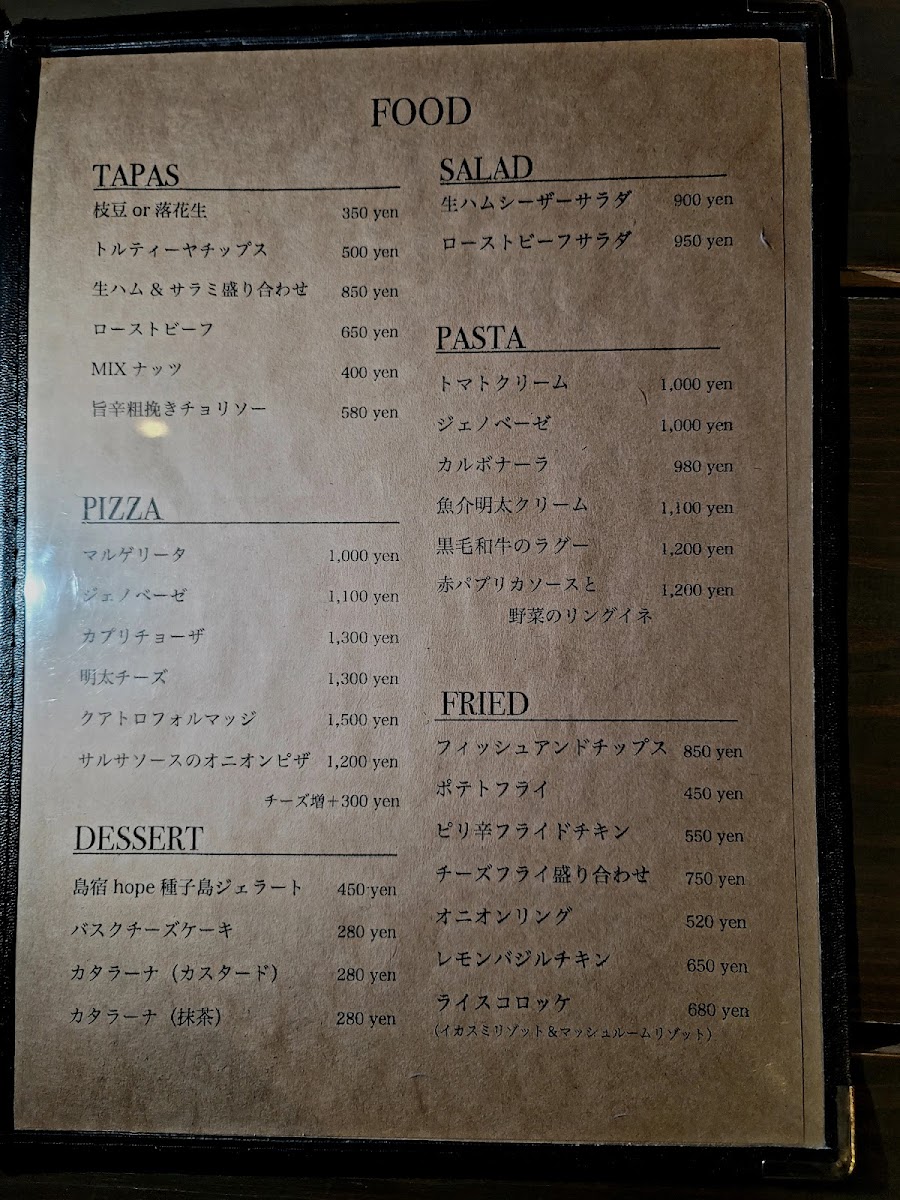 FOOD
TAPAS
枝豆 or 落花生 350 yen
トルティーヤチップス 500 yen
生ハム & サラミ盛り合わせ 850 yen
ローストビーフ 650 yen
MIX ナッツ 400 yen
旨辛粗挽きチョリソー 580 yen
PIZZA
マルゲリータ 1,000 yen
ジェノベーゼ 1,100 yen
カプリチョーザ 1,300 yen
明太チーズ 1,300 yen
クアトロフォルマッジ 1,500 yen
サルサソースのオニオンピザ 1,200 yen
チーズ増+300 yen
DESSERT
島宿 hope 種子島ジェラート 450 yen
バスクチーズケーキ 280 yen
カタラーナ（カスタード） 280 yen
カタラーナ（抹茶） 280 yen
SALAD
生ハムシーザーサラダ 900 yen
ローストビーフサラダ 950 yen
PASTA
トマトクリーム 1,000 yen
ジェノベーゼ 1,000 yen
カルボナーラ 980 yen
魚介明太クリーム 1,100 yen
黒毛和牛のラグー 1,200 yen
赤パプリカソースと 1,200 yen
野菜のリングイネ
FRIED
フィッシュアンドチップス 850 yen
ポテトフライ 450 yen
ピリ辛フライドチキン 550 yen
チーズフライ盛り合わせ 750 yen
オニオンリング 520 yen
レモンバジルチキン 650 yen
ライスコロッケ 680 yen
（イカスミリゾット＆マッシュルームリゾット）